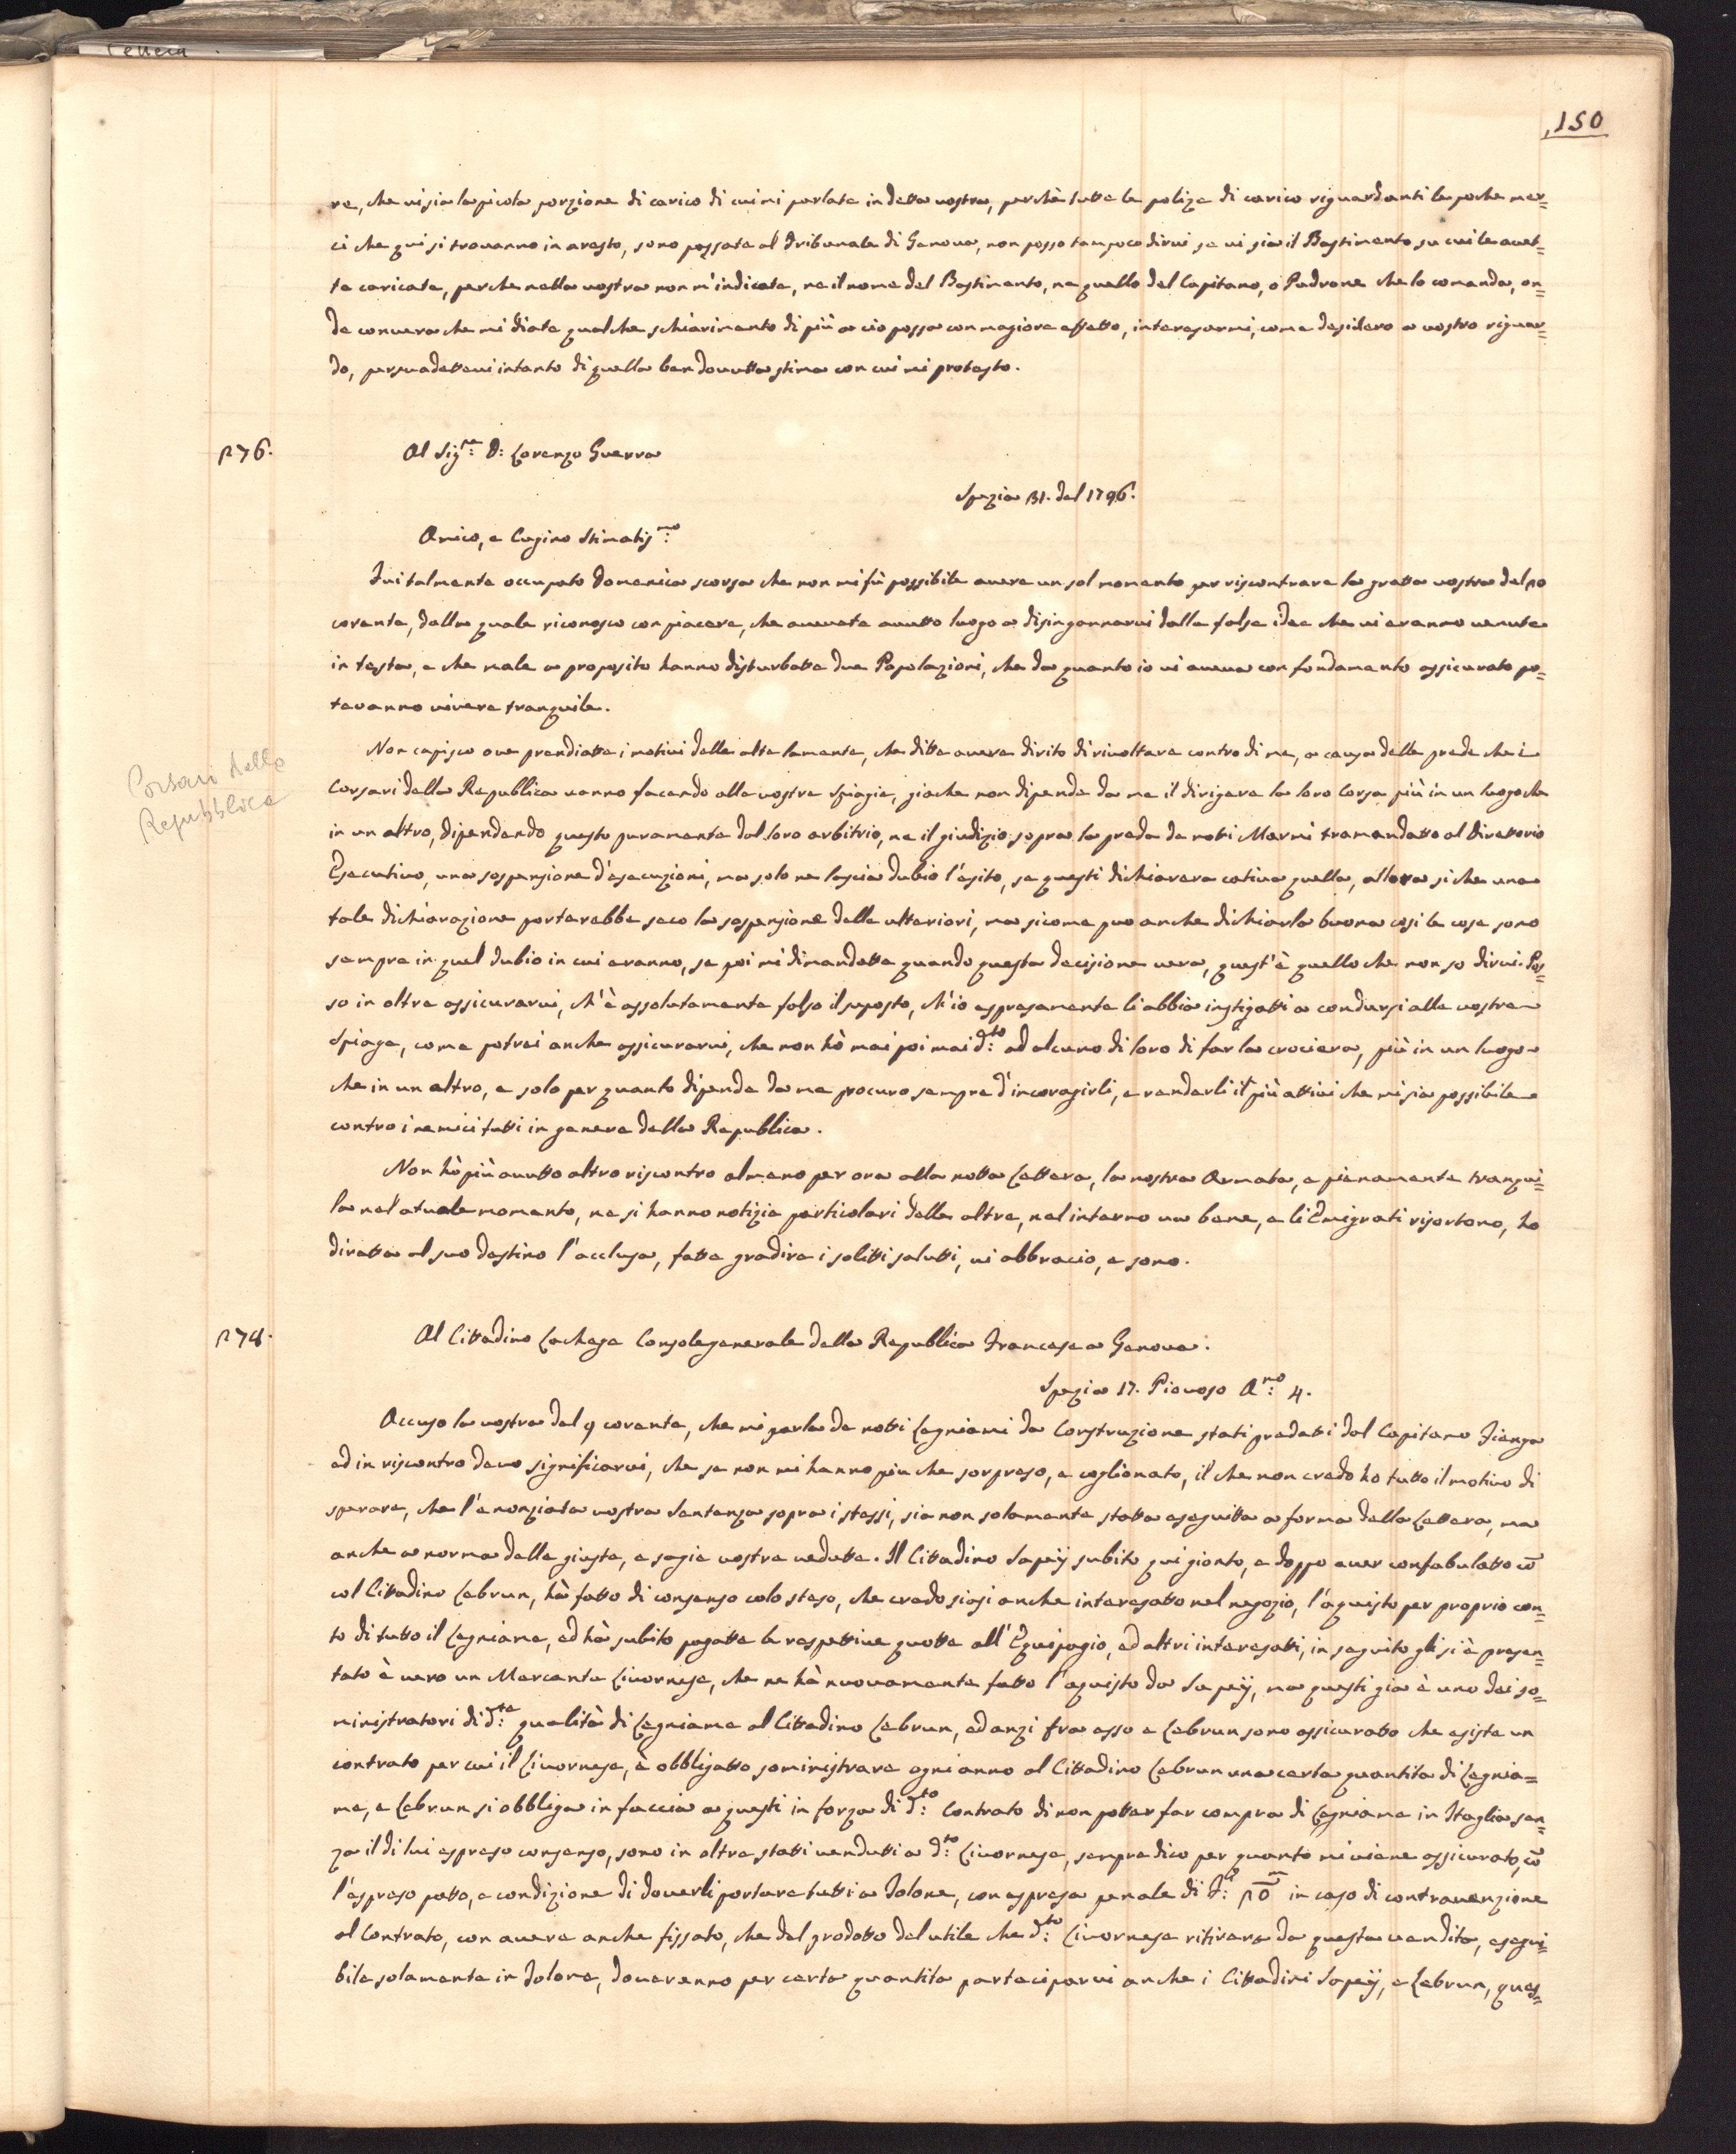 150
re, che vi sia la picola porzione di carico di cui mi parlate in detta vostra, perchè tutte le polize di carico riguardanti le poche mer=
ci che qui si trovanno in aresto, sono passate al Tribunale di Genova, non posso tampoco dirvi se vi sia il Bastimento su cui le avet=
te caricate, perche nella vostra non m'indicate, ne il nome del Bastimento, ne quello del Capitano, o Padrone che lo comanda, on=
de converà che mi diate qualche schiarimento di più a cio possa con magiore effetto, interesarmi, come desidero a vostro riguar=
do, persuadettevi intanto di quella ben dovutta stima con cui mi protesto.
176.
Al Sig.re D: Lorenzo Guerra
Spezia 31. del 1796.
Amico, e Cugino Stimatis.mo
Fui talmente occupato Domenica scorsa che non mi fù possibile avere un sol momento per riscontrare la gratta vostra del 20
corente, dalla quale riconosco con piacere, che avevate avutto luogo a disingannarvi dalla falsa idea che vi eranno venute
in testa, e che male a proposito hanno disturbatte due Popolazioni, che da quanto io vi aveva con fondamento assicurato po=
tevanno vivere tranquile.
Non capisco ove prendiatte i motivi delle alte lamente, che ditte avere dirito di rivoltare contro di me, a causa delle prede che i
Corsari della Republica vanno facendo alle vostre Spiagie, gioche non dipende da me il dirigere la loro Corsa più in un luogo che
in un altro, dipendendo questo puramente dal loro arbitrio, ne il giudizio sopra la preda de notti Marmi tramandatto al Direttorio
Esecutivo, una sospensione d'esecuzioni, ma solo ne lascia dubio l'esito, se questi dichiarera cativa quella, allora si che una
tale dichiarazione porterebbe seco la sospensione delle ulteriori, ma sicome puo anche dichiarla buona cosi le cose sono
sempre in quel dubio in cui eranno, se poi mi dimandatte quando questa decisione vera, quest'è quello che non so dirvi. Pos=
so in oltre assicurarvi, ch'è assolutamente falso il suposto, ch'io espresamente li abbia instigatti a condursi alle vostre
Spiage, come potrei anche assicurarvi, che non hò mai poi mai d:to ad alcuno di loro di far la crociera, più in un luogo
che in un altro, e solo per quanto dipende da me procuro sempre d'incoragirli, e renderli il più attivi che mi sia possibile
contro i nemici tutti in genere della Republica.
Corsari della
Repubblica
Non hò più avutto altro riscontro almeno per ora alla notta Lettera, la nostra Armata, e pienamente tranqui=
la nel atuale momento, ne si hanno notizie particolari delle altre, nel interno va bene, e li Emigrati risortono, ho
diretta al suo destino l'acclusa, fatte gradire i solitti salutti, vi abbracio, e sono.
178.
Al Cittadino Lachege Console generale della Republica Francese a Genova.
Spezia 17. Piovoso A:no 4.
Accuso la vostra del 9 corente, che mi parla de notti Legniami da Construzione stati predatti dal Capitano Fienga
ed in riscontro devo significarvi, che se non mi hanno più che sorpreso, e coglionato, il che non credo ho tutto il motivo di
sperare, che l'enonziata vostra Sentenza sopra i stessi, sia non solamente statta eseguitta a forma della Lettera, ma
anche a norma delle giuste, e sagie vostre vedutte. Il Cittadino Sapeÿ subito qui gionto, e doppo aver confabulatto cō
col Cittadino Lebrun, hà fatto di consenso colo steso, che credo siasi anche interesatto nel negozio, l'aquisto per proprio con=
to di tutto il Legniame, ed hà subito pagatte le respettive quotte all'Equipagio, ed altri interesatti, in seguito gli si è presen=
tato è vero un Mercante Livornese, che ne hà nuovamente fatto l'aquisto da Sapeÿ, ma questi gia è uno dei so=
ministratori di d:te qualità di Legniame al Cittadino Lebrun, ed anzi fra esso e Lebrun sono assicuratto che esiste un
contrato per cui il Livornese, è obbligatto soministrare ogni anno al Cittadino Lebrun una certa quantita di Legnia=
me, e Lebrun si obbliga in faccia a questi in forza di d:to Contrato di non potter far compra di Legniame in Itaglia sen=
za il di lui espreso consenso, sono in oltre statti vendutti a d:to Livornese, sempre dico per quanto mi viene assicurato, cō
l'espreso patto, e condizione di doverli portare tutti a Tolone, con espresa penale di in caso di contravenzione
al Contrato, con avere anche fissato, che del prodotto del utile che d:to Livornese ritirera da questa vendita, esegui=
bile solamente in Tolone, doveranno per certa quantita partecipарvi anche i Cittadini Sapeÿ, e Lebrun, ques=